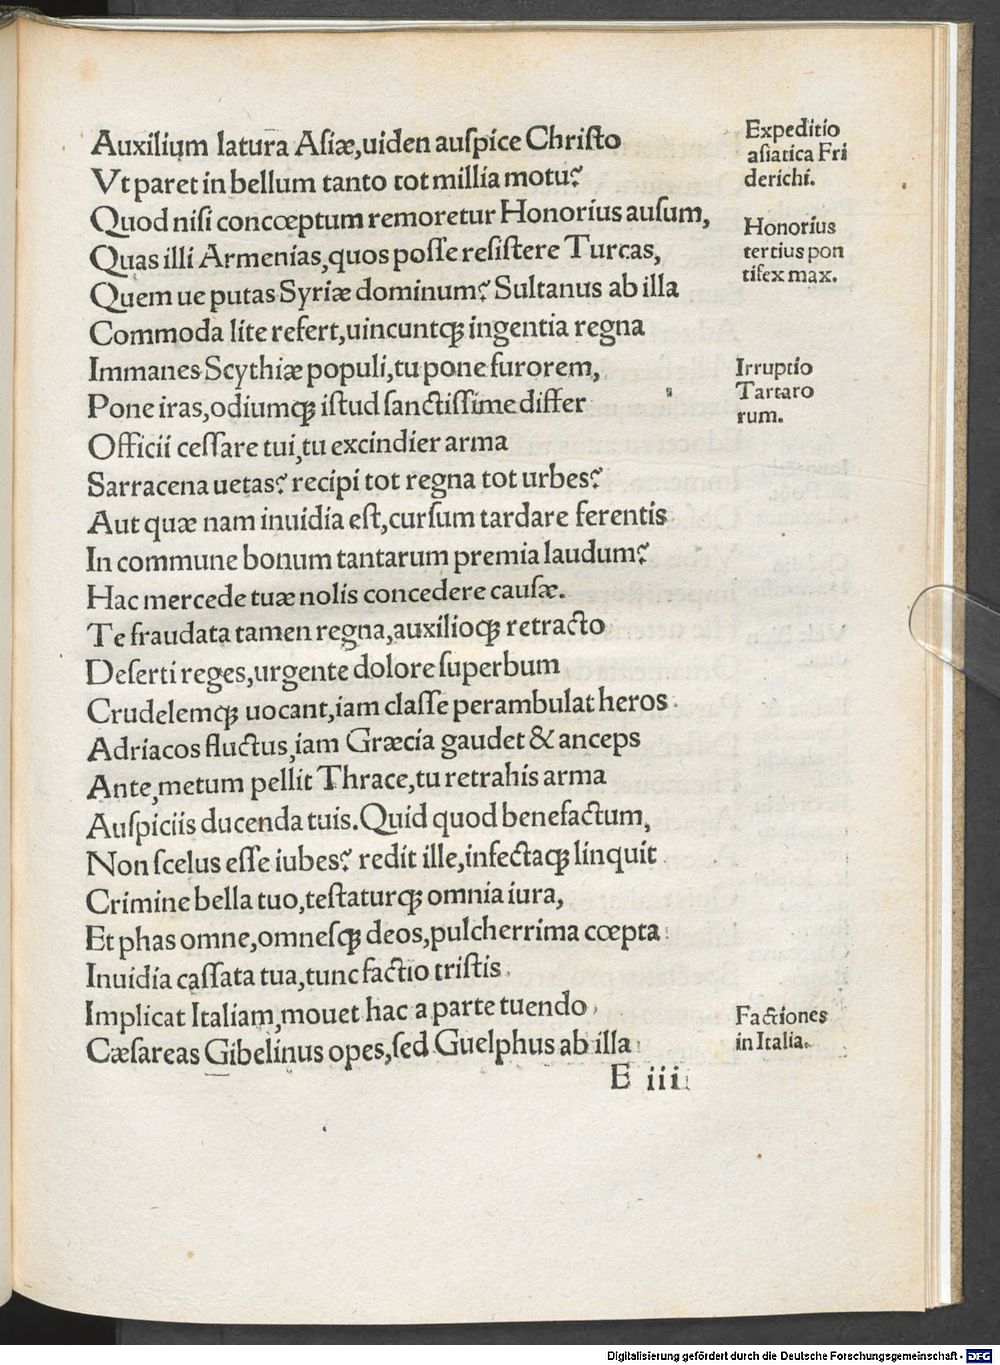 Auxilium latura Asiæ,uiden auspice Christo
Vt paret in bellum tanto tot millia motu?
Quod nisi concœptum remoretur Honorius ausum,
Quas illi Armenias,quos posse resistere Turcas,
Quem ue putas Syriæ dominum? Sultanus ab illa
Commoda lite refert,uincuntqꝫ ingentia regna
Immanes Scythiæ populi,tu pone furorem,
Pone iras,odiumqꝫ istud sanctissime differ
Officii cessare tui,tu excindier arma
Sarracena uetas? recipi tot regna tot urbes?
Aut quæ nam inuidia est,cursum tardare ferentis
In commune bonum tantarum premia laudum?
Hac mercede tuæ nolis concedere causæ.
Te fraudata tamen regna,auxilioqꝫ retracto
Deserti reges,urgente dolore superbum
Crudelemqꝫ uocant,iam classe perambulat heros
Adriacos fluctus,iam Græcia gaudet & anceps
Ante,metum pellit Thrace,tu retrahis arma
Auspiciis ducenda tuis.Quid quod benefactum,
Non scelus esse iubes? redit ille,infectaqꝫ linquit
Crimine bella tuo,testaturqꝫ omnia iura,
Et phas omne,omnesqꝫ deos,pulcherrima cœpta
Inuidia cassata tua,tunc factio tristis
Implicat Italiam,mouet hac a parte tuendo
Cæsareas Gibelinus opes,sed Guelphus ab illa
E iii
Expeditio
asiatica Fri
derichi.
Honorius
tertius pon
tifex max.
Irruptio
Tartaro
rum.
Factiones
in Italia.
Digitalisierung gefördert durch die Deutsche Forschungsgemeinschaft - DFG